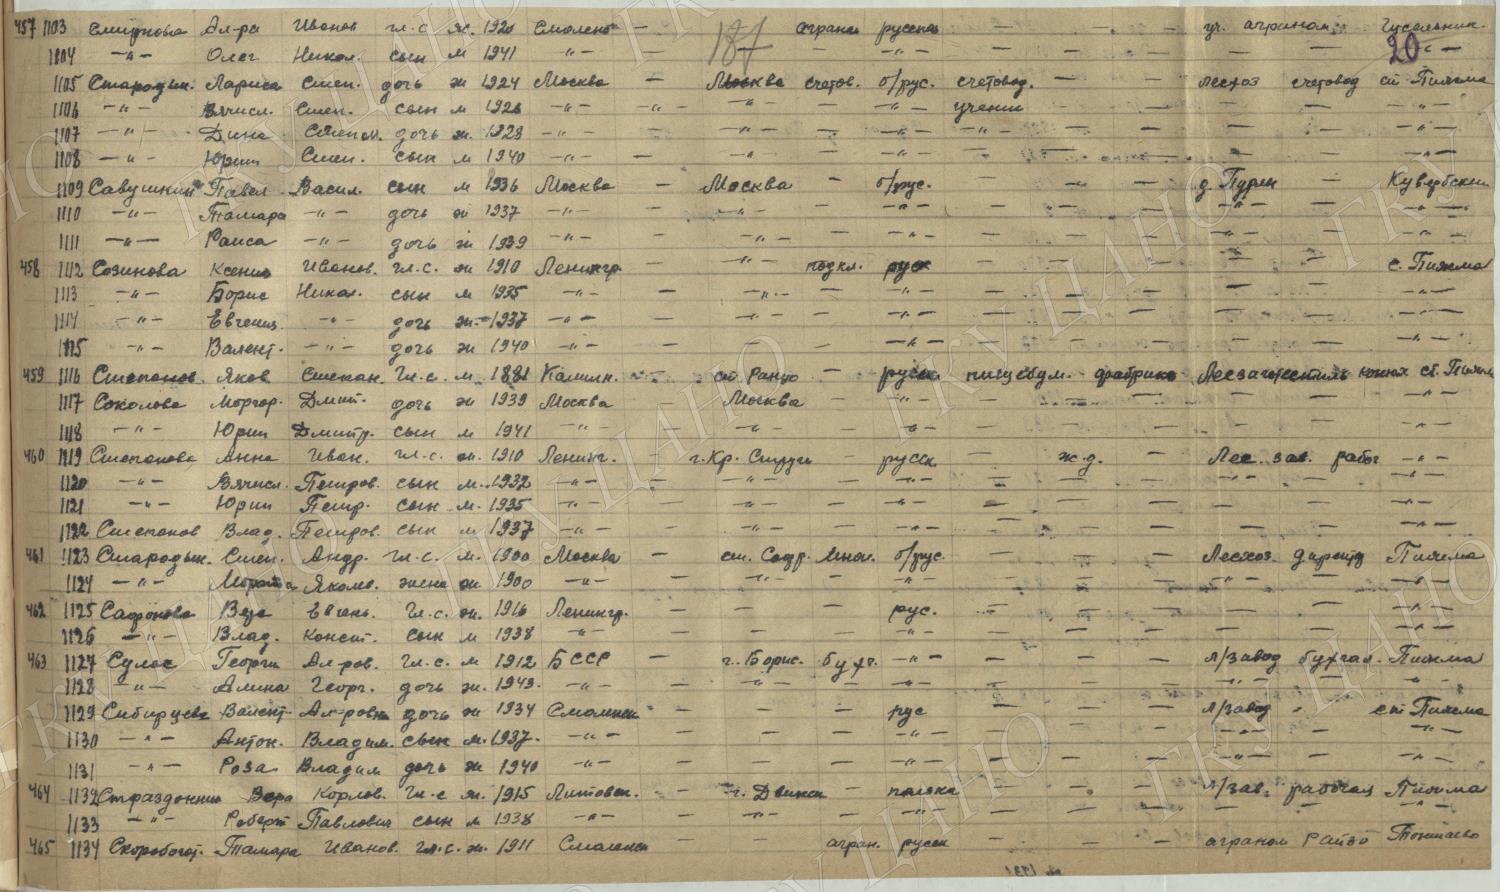 457 1103 Смирнова Ал-ра Иванов гл.с. ж. 1920 Смоленс — агроном русская — — — уч. агроном
1104 —"— Олег Никол. сын м 1941 —"— 187 —"— 20
1105 Стародым. Лариса Степ. дочь ж 1924 Москва — Москва счетов. б/рус. счетовод. — — лесхоз счетовод ст Пижма
1106 —"— Вячисл. Степ. сын м 1926 —"— —"— —"— — —"— ученик — —"—
1107 —"— Дина Степан. дочь ж. 1928 —"— — —"— — —"— —"— — —"—
1108 —"— Юрий Степ. сын м 1940 —"— — —"— — —"— — —"—
1109 Савушкин Павел Васил. сын м 1936 Москва — Москва — б/рус. — — — д. Пурли —
1110 —"— Тамара —"— дочь ж 1937 —"— —"— — —"— — — —"— —"—
1111 —"— Раиса —"— дочь ж 1939 —"— —"— — —"— — — —"— —"—
458 1112 Созинова Ксения Иванов. гл.с. ж 1910 Ленингр. — —"— русс — — — с. Пижма
1113 —"— Борис Никол. сын м 1935 —"— — —"— — —"— — — —"—
1114 —"— Евгения —"— дочь ж. 1937 —"— — — —"— — — —"—
1115 —"— Валент. —"— дочь ж 1940 —"— — — —"— — — —"—
459 1116 Степанов. Яков Степан. гл.с. м 1881 Калин. — — русск пищебум. фабрика ст. Пижм
1117 Соколова Маргар. Дмит. дочь ж 1939 Москва — Москва — —"— — — —"—
1118 —"— Юрий Дмитр. сын м 1941 —"— — —"— — —"— — — —"—
460 1119 Степанова Анна Иван. гл.с. ж. 1910 Ленинг. — г. Кр. Струги — русск — ж.д. — Лес. зав. рабоч —"—
1120 —"— Вячисл. Петров. сын м. 1932 —"— — —"— — —"— — — —"—
1121 —"— Юрий Петр. сын м. 1935 —"— — —"— — —"— — — —"—
1122 Степанов Влад. Петров. сын м 1937 —"— — —"— — —"— — — —"—
461 1123 Стародым. Степ. Андр. гл.с. м. 1900 Москва — б/рус. — — — Лесхоз. директ Пижма
1124 —"— Яковл. жена ж. 1900 —"— — —"— — —"— — — —"— —"—
462 1125 Сафонова Вера Евгень. гл.с. ж. 1916 Ленингр. рус. — — —
1126 —"— Влад. Конст. сын м 1938 —"— —"— — —
463 1127 Сулас Георгий Ал-ров. гл.с. м 1912 БССР — г. Борис. бухг. —"— — — л/завод бухгал. Пижма
1128 —"— Алина Георг. дочь ж. 1943. —"— — —"— — —"— — — —"— —"—
1129 Сибирцева Валент. Ал-ровна дочь ж 1934 Смоленск — — рус — — — л/завод ст Пижма
1130 —"— Антон. Владим. сын м. 1937. —"— — — —"— — — —"— —"—
1131 —"— Роза Владим дочь ж 1940 —"— — — —"— — — —"—
464 1132 Вера Карлов. гл.с ж. 1915 Литовск. — г. Двинск — полька — — — л/зав. рабочая Пижма
1133 —"— Роберт Павлович сын м 1938 —"— — —"— — —"— — — —"—
465 1134 Скоробогат. Тамара Иванов. гл.с. ж. 1911 Смоленск — — агрон. русск — — — агроном Райзо Тоншаево
ГКУ ЦАНО